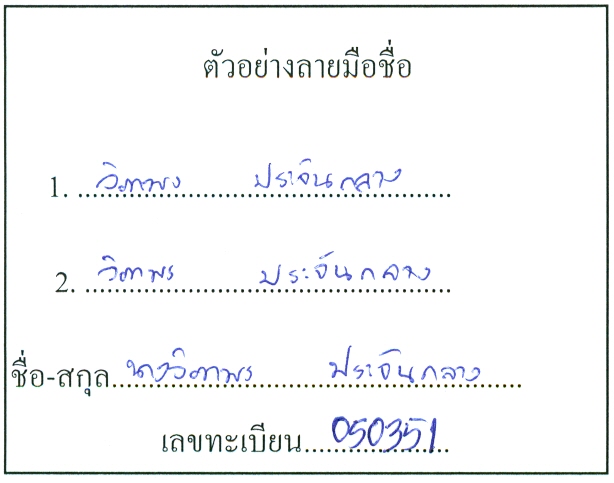 ตัวอย่างลายมือชื่อ
1. วิภาพร ประจันกลาง
2. วิภาพร ประจันกลาง
ชื่อ-สกุล นางวิภาพร ประจันกลาง
เลขทะเบียน 050351